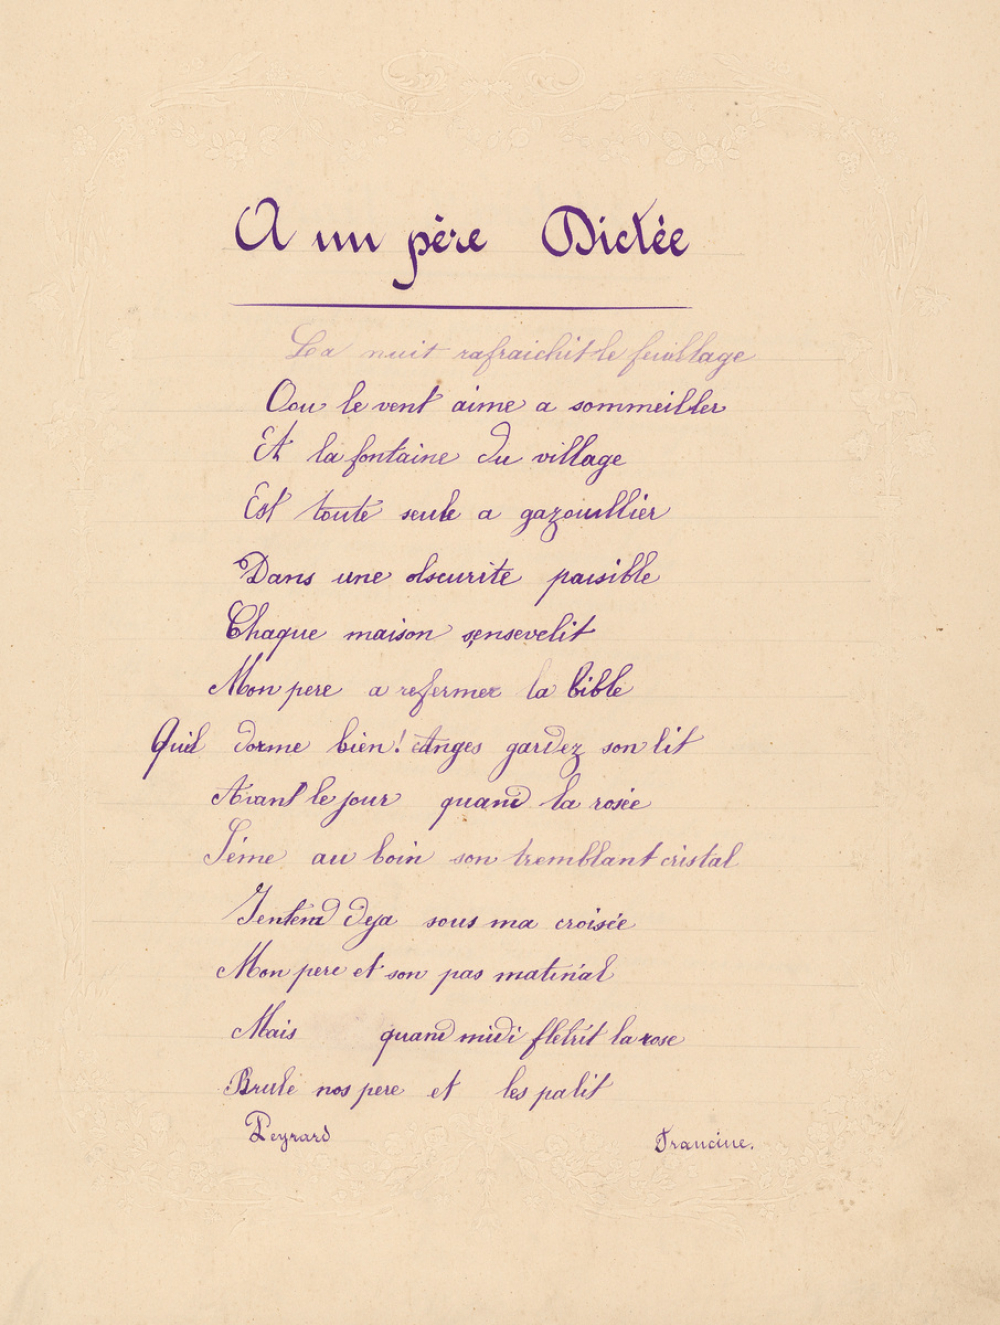 A un père Dictée
La nuit rafraichit le feuillage
Oou le vent aime a sommeiller
Et la fontaine du village
Est toute seule a gazouillier
Dans une obscurite paisible
Chaque maison sensevelit
Mon pere a refermer la bible
Quil dorme bien! Anges gardez son lit
Avant le jour quand la rosée
Séme au boin son tremblant cristal
Jentend deja sous ma croisée
Mon pere et son pas matinal
Mais quand midi fletrit la rose
Brule nos pere et les palit
Peyrard Francine.